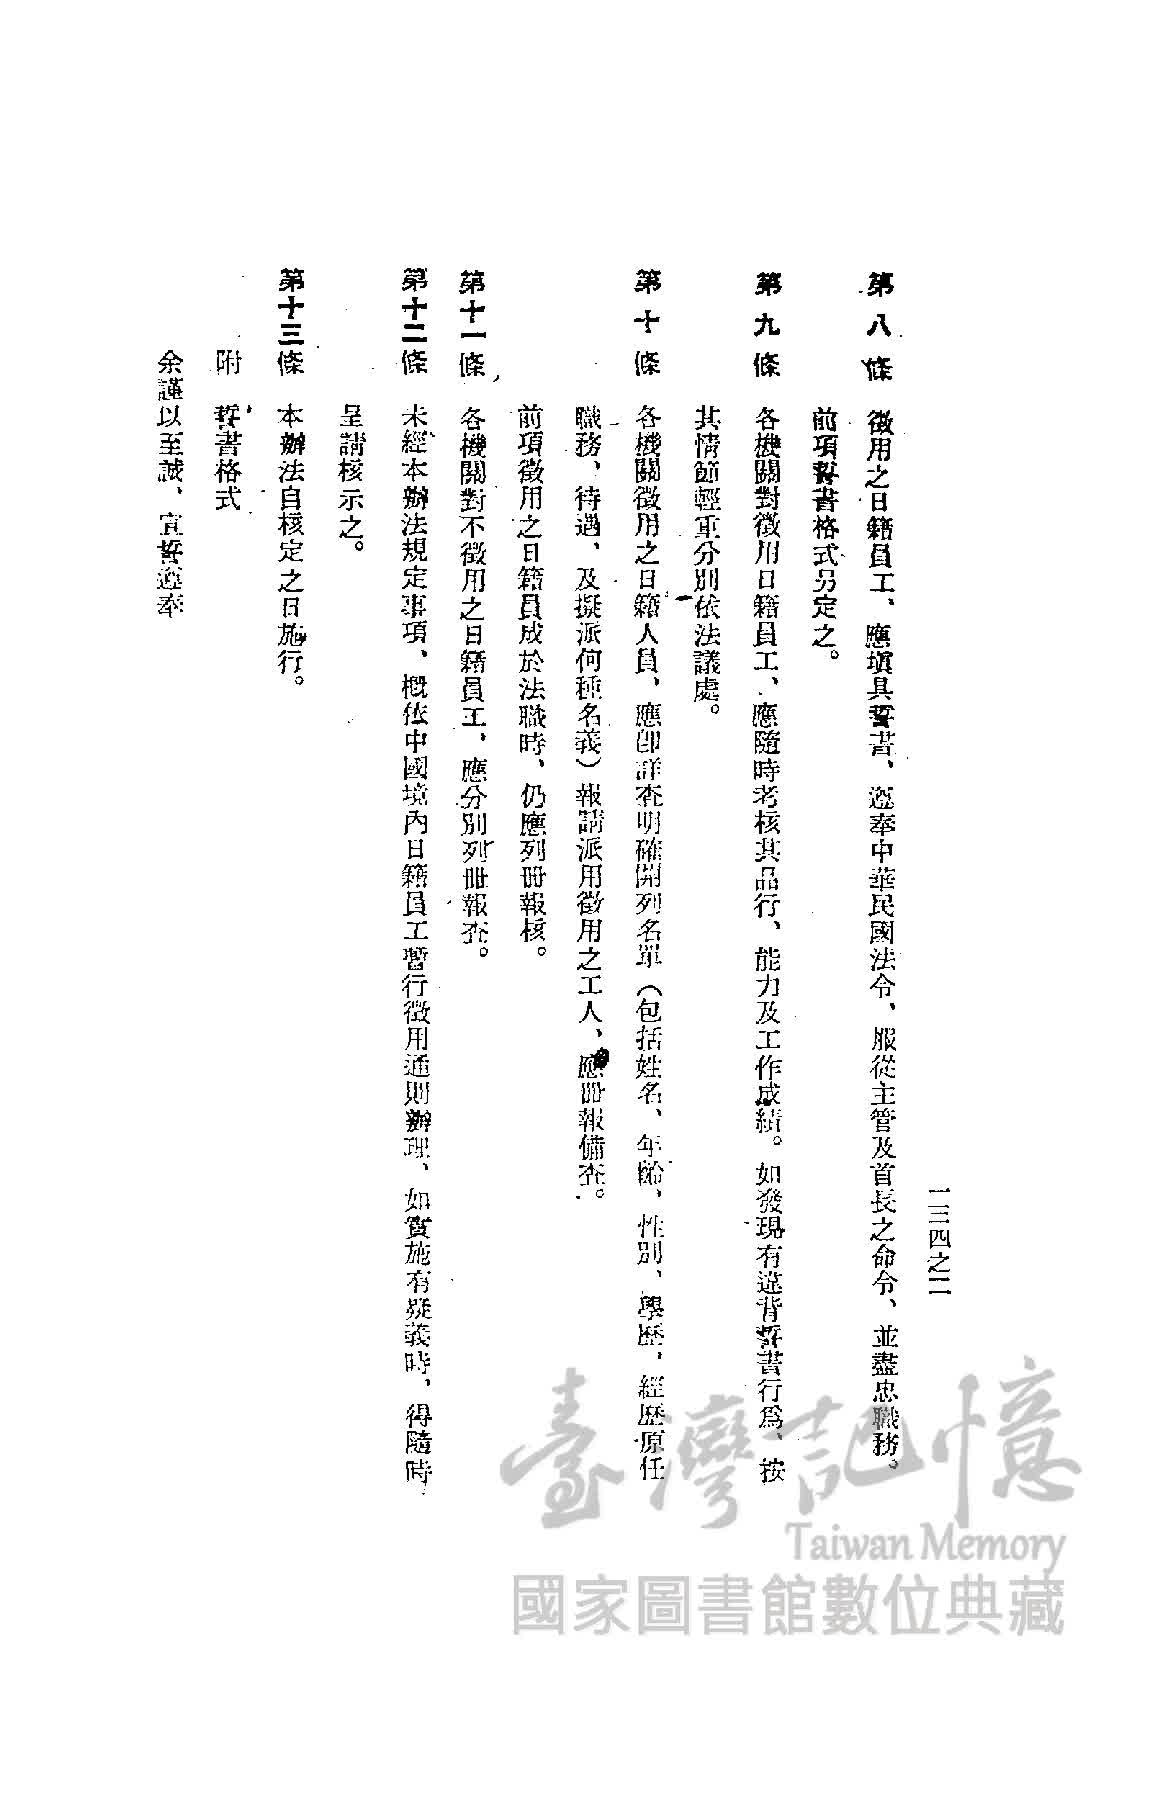 一三四之二
第八條 徵用之日籍員工、應塡具誓書、遵奉中華民國法令、服從主管及首長之命令、並盡忠職務。
前項誓書格式另定之。
第九條 各機關對徵用日籍員工、應隨時考核其品行、能力及工作成績。如發現有違背誓書行爲、按
其情節輕重分別依法議處。
第十條 各機關徵用之日籍人員、應卽詳查明確開列名單(包括姓名、年齡、性別、學歷、經歷原任
職務、待遇、及擬派何種名義)報請派用徵用之工人、應册報備查。
前項徵用之日籍員成於法職時、仍應列册報核。
第十一條 各機關對不徵用之日籍員工、應分別列册報查。
第十二條 未經本辦法規定事項、概依中國境內日籍員工暫行徵用通則辦理、如實施有疑義時、得隨時
呈請核示之。
第十三條 本辦法自核定之日施行。
附 誓書格式
余謹以至誠、宣誓遵奉
臺灣記憶
Taiwan Memory
國家圖書館數位典藏